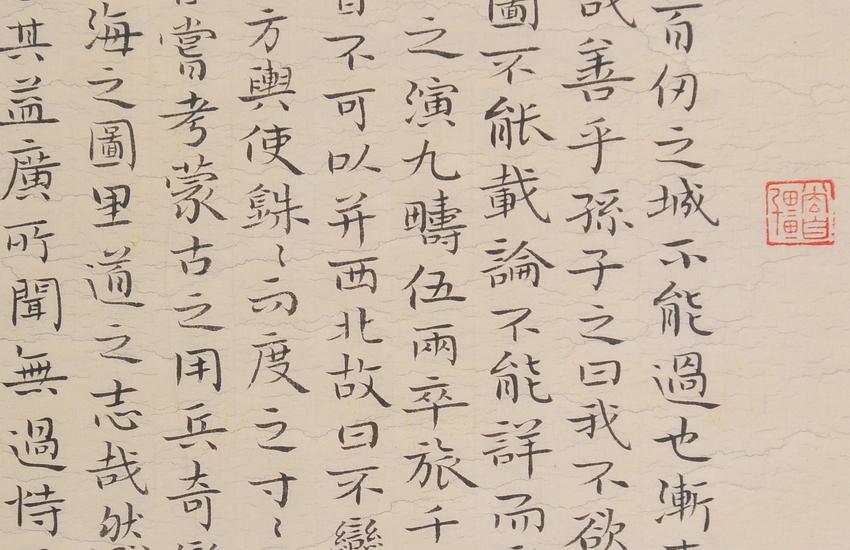 百仞之城不能過也漸
哉善乎孫子之曰我不欲
圖不能載論不能詳而
之演九疇伍兩卒旅千
不可以并西北故曰不變
方輿使銖〻而度之寸〻
嘗考蒙古之用兵奇
海之圖里道之志哉然
其益廣所聞無過恃